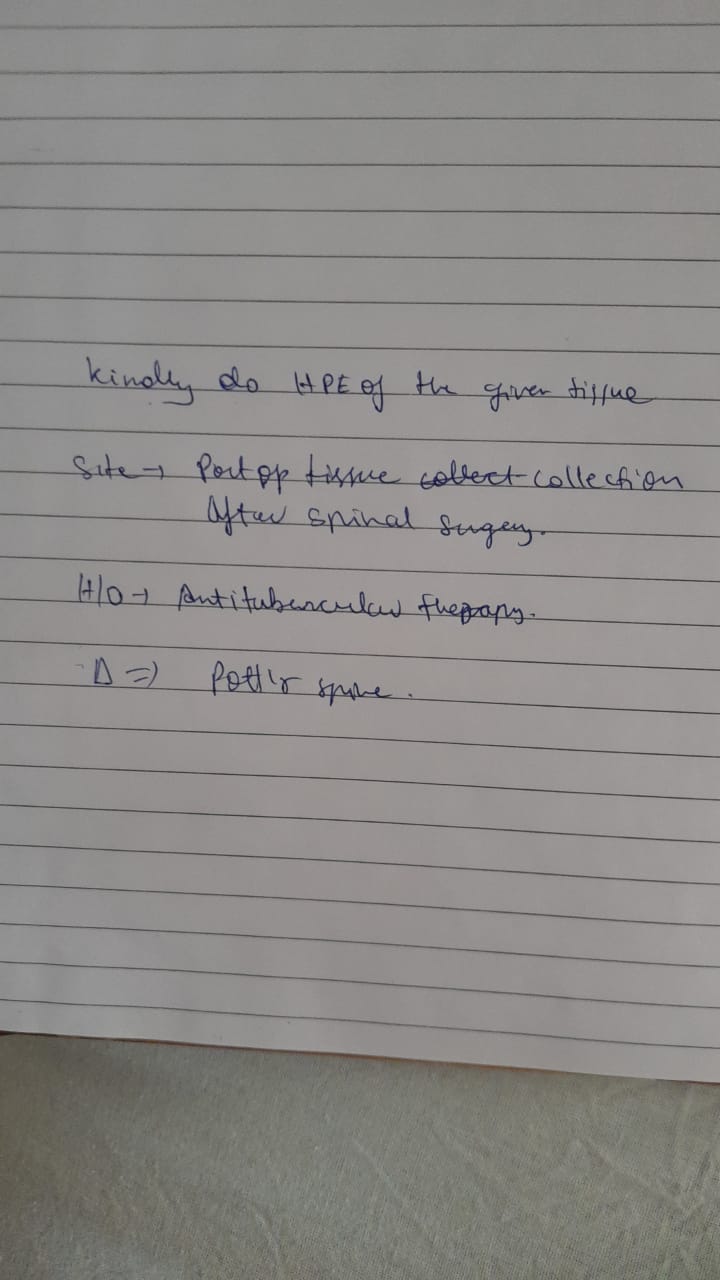 Kindly do HPE of the given tissue
Site → Post op tissue collect collection
After spinal sugery.
H/O → Antitubercular therapy.
Δ ⇒ Pott's spine.